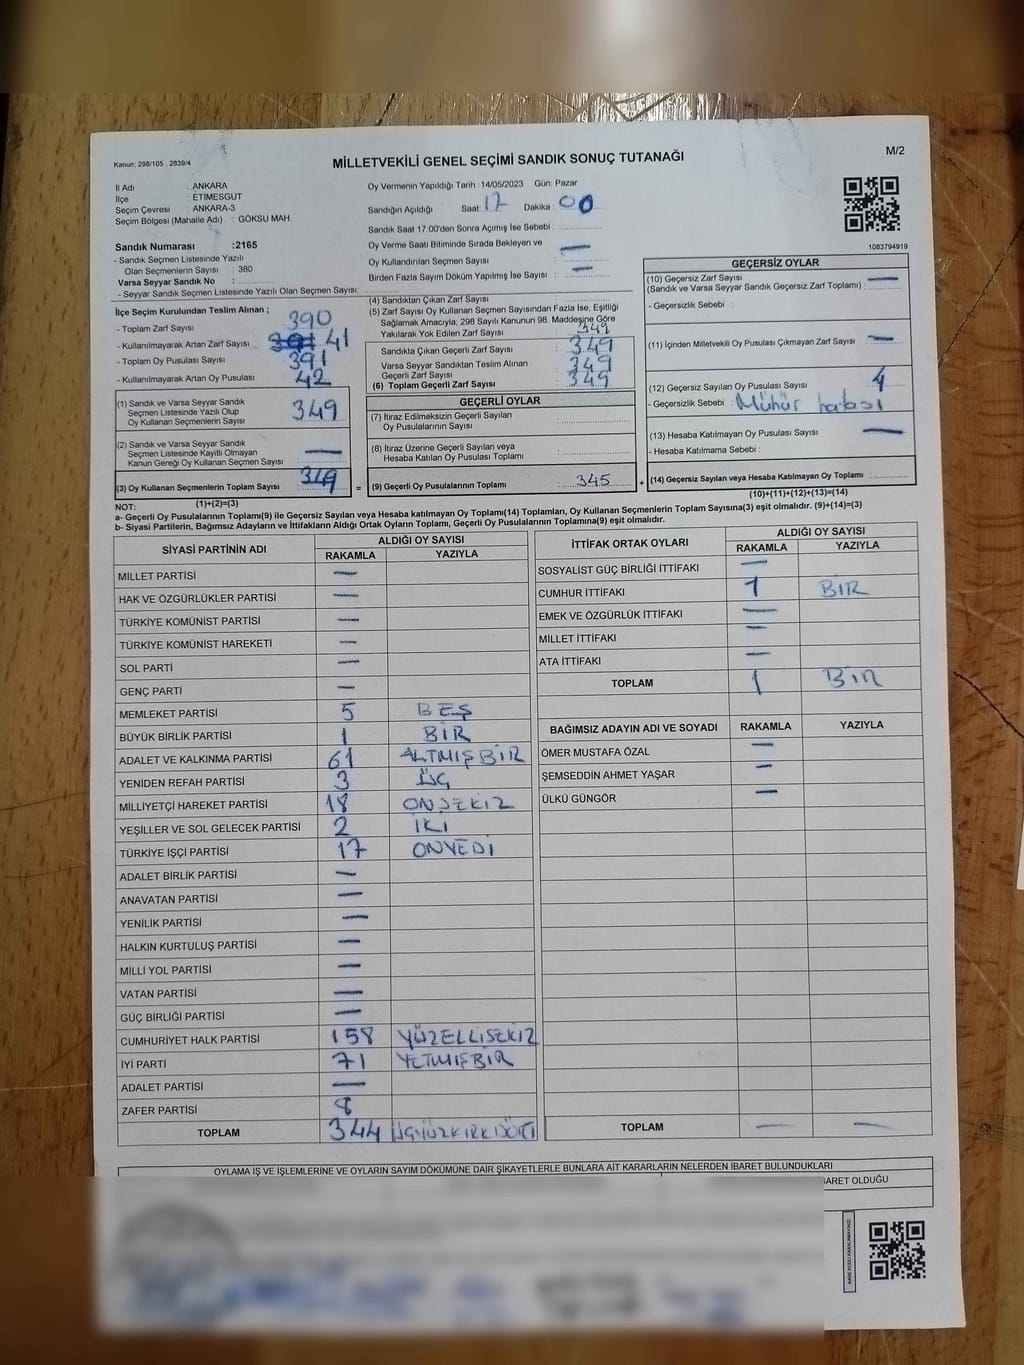 Kanun, 298/105 , 2839/4
MİLLETVEKİLİ GENEL SEÇİMİ SANDIK SONUÇ TUTANAĞI
M/2
İl Adı : ANKARA
İlçe : ETİMESGUT
Seçim Çevresi : ANKARA-3
Seçim Bölgesi (Mahalle Adı) : GÖKSU MAH.
Oy Vermenin Yapıldığı Tarih :14/05/2023 Gün: Pazar
Sandığın Açıldığı Saat: 17 Dakika : 00
Sandık Saat 17:00'den Sonra Açımış İse Sebebi :
Oy Verme Saati Bitiminde Sırada Bekleyen ve
Oy Kullandırılan Seçmen Sayısı : —
Birden Fazla Sayım Döküm Yapılmış İse Sayısı : —
1083794919
Sandık Numarası :2165
- Sandık Seçmen Listesinde Yazılı
Olan Seçmenlerin Sayısı : 380
Varsa Seyyar Sandık No :
- Seyyar Sandık Seçmen Listesinde Yazılı Olan Seçmen Sayısı:
İlçe Seçim Kurulundan Teslim Alınan ;
- Toplam Zarf Sayısı 390
- Kullanılmayarak Artan Zarf Sayısı 41
- Toplam Oy Pusulası Sayısı 391
- Kullanılmayarak Artan Oy Pusulası 42
(1) Sandık ve Varsa Seyyar Sandık
Seçmen Listesinde Yazılı Olup
Oy Kullanan Seçmenlerin Sayısı 349
(2) Sandık ve Varsa Seyyar Sandık
Seçmen Listesinde Kayıtlı Olmayan
Kanun Gereği Oy Kullanan Seçmen Sayısı : —
(3) Oy Kullanan Seçmenlerin Toplam Sayısı 349
(1)+(2)=(3)
(4) Sandıktan Çıkan Zarf Sayısı :
(5) Zarf Sayısı Oy Kullanan Seçmen Sayısından Fazla İse, Eşitliği
Sağlamak Amacıyla; 298 Sayılı Kanunun 98. Maddesine Göre
Yakılarak Yok Edilen Zarf Sayısı : 349
Sandıkta Çıkan Geçerli Zarf Sayısı : 349
Varsa Seyyar Sandıktan Teslim Alınan
Geçerli Zarf Sayısı : 349
(6) Toplam Geçerli Zarf Sayısı : 349
GEÇERLİ OYLAR
(7) İtiraz Edilmeksizin Geçerli Sayılan
Oy Pusulalarının Sayısı :
(8) İtiraz Üzerine Geçerli Sayılan veya
Hesaba Katılan Oy Pusulası Toplamı :
=
(9) Geçerli Oy Pusulalarının Toplamı : 345
+
GEÇERSİZ OYLAR
(10) Geçersiz Zarf Sayısı
(Sandık ve Varsa Seyyar Sandık Geçersiz Zarf Toplamı) : —
- Geçersizlik Sebebi :
(11) İçinden Milletvekili Oy Pusulası Çıkmayan Zarf Sayısı : —
(12) Geçersiz Sayılan Oy Pusulası Sayısı : 4
- Geçersizlik Sebebi : Mühür hatası
(13) Hesaba Katılmayan Oy Pusulası Sayısı : —
- Hesaba Katılmama Sebebi :
(14) Geçersiz Sayılan veya Hesaba Katılmayan Oy Toplamı :
(10)+(11)+(12)+(13)=(14)
NOT:
a- Geçerli Oy Pusulalarının Toplamı(9) ile Geçersiz Sayılan veya Hesaba katılmayan Oy Toplamı(14) Toplamları, Oy Kullanan Seçmenlerin Toplam Sayısına(3) eşit olmalıdır. (9)+(14)=(3)
b- Siyasi Partilerin, Bağımsız Adayların ve İttifakların Aldığı Ortak Oyların Toplamı, Geçerli Oy Pusulalarının Toplamına(9) eşit olmalıdır.
SİYASİ PARTİNİN ADI ALDIĞI OY SAYISI
RAKAMLA YAZIYLA
MİLLET PARTİSİ —
HAK VE ÖZGÜRLÜKLER PARTİSİ —
TÜRKİYE KOMÜNİST PARTİSİ —
TÜRKİYE KOMÜNİST HAREKETİ —
SOL PARTİ —
GENÇ PARTİ —
MEMLEKET PARTİSİ 5 BEŞ
BÜYÜK BİRLİK PARTİSİ 1 BİR
ADALET VE KALKINMA PARTİSİ 61 ALTMIŞBİR
YENİDEN REFAH PARTİSİ 3 ÜÇ
MİLLİYETÇİ HAREKET PARTİSİ 18 ONSEKİZ
YEŞİLLER VE SOL GELECEK PARTİSİ 2 İKİ
TÜRKİYE İŞÇİ PARTİSİ 17 ONYEDİ
ADALET BİRLİK PARTİSİ —
ANAVATAN PARTİSİ —
YENİLİK PARTİSİ —
HALKIN KURTULUŞ PARTİSİ —
MİLLİ YOL PARTİSİ —
VATAN PARTİSİ —
GÜÇ BİRLİĞİ PARTİSİ —
CUMHURİYET HALK PARTİSİ 158 YÜZELLİSEKİZ
İYİ PARTİ 71 YETMİŞBİR
ADALET PARTİSİ —
ZAFER PARTİSİ 8
TOPLAM 344 ÜÇYÜZKIRKDÖRT
İTTİFAK ORTAK OYLARI ALDIĞI OY SAYISI
RAKAMLA YAZIYLA
SOSYALİST GÜÇ BİRLİĞİ İTTİFAKI —
CUMHUR İTTİFAKI 1 BİR
EMEK VE ÖZGÜRLÜK İTTİFAKI —
MİLLET İTTİFAKI —
ATA İTTİFAKI —
TOPLAM 1 BİR
BAĞIMSIZ ADAYIN ADI VE SOYADI RAKAMLA YAZIYLA
ÖMER MUSTAFA ÖZAL —
ŞEMSEDDİN AHMET YAŞAR —
ÜLKÜ GÜNGÖR —
TOPLAM — —
OYLAMA İŞ VE İŞLEMLERİNE VE OYLARIN SAYIM DÖKÜMÜNE DAİR ŞİKAYETLERLE BUNLARA AİT KARARLARIN NELERDEN İBARET BULUNDUKLARI
BARET OLDUĞU
KARE KODU KARALAMAYINIZ!